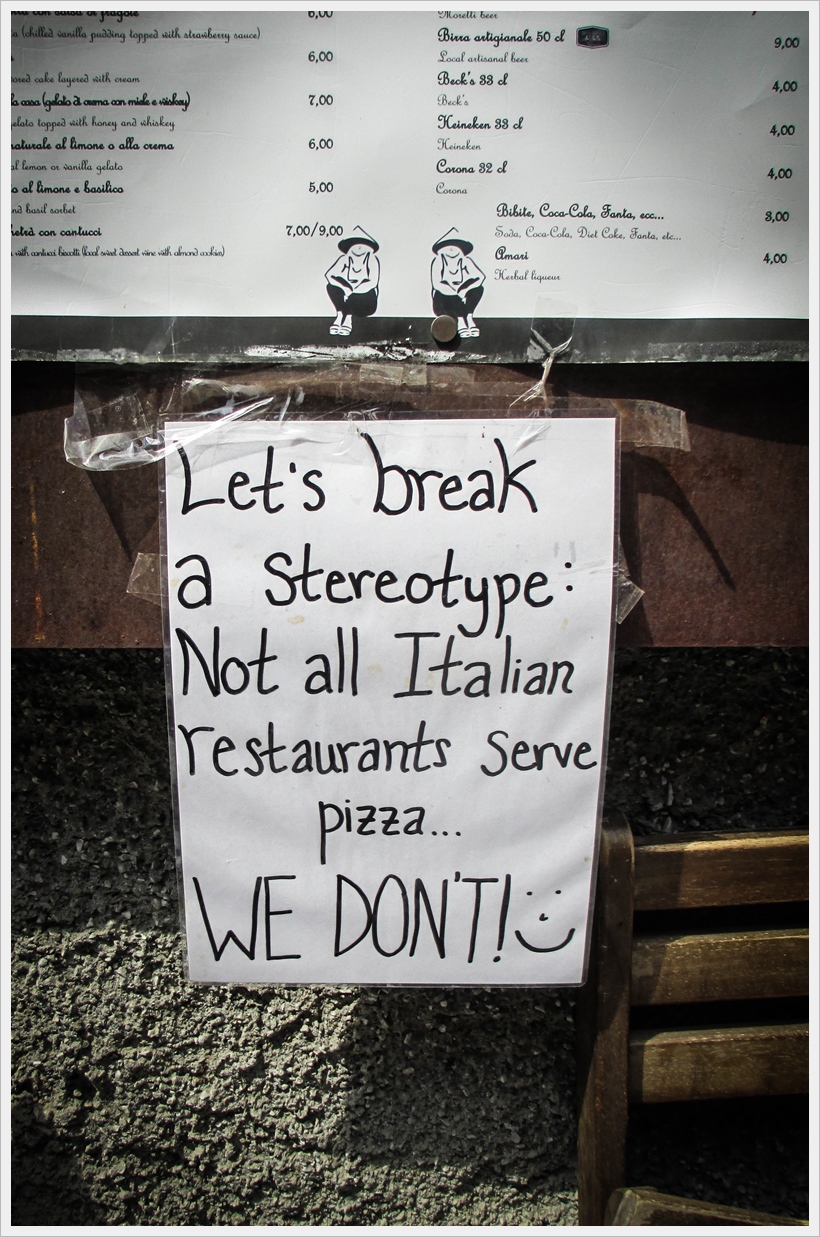 con salsa di fragole 6,00
(chilled vanilla pudding topped with strawberry sauce)
6,00
cake layered with cream
casa (gelato di crema con miele e whiskey) 7,00
topped with honey and whiskey
naturale al limone o alla crema 6,00
lemon or vanilla gelato
al limone e basilico 5,00
basil sorbet
con cantucci 7,00/9,00
with cantucci biscotti (local sweet dessert wine with almond cookies)
Moretti beer
Birra artigianale 50 cl 9,00
Local artisanal beer
Beck's 33 cl 4,00
Beck's
Heineken 33 cl 4,00
Heineken
Corona 32 cl 4,00
Corona
Bibite, Coca-Cola, Fanta, ecc... 3,00
Soda, Coca-Cola, Diet Coke, Fanta, etc...
Amari 4,00
Herbal liqueur
Let's break
a stereotype:
Not all Italian
restaurants serve
pizza...
WE DON'T!